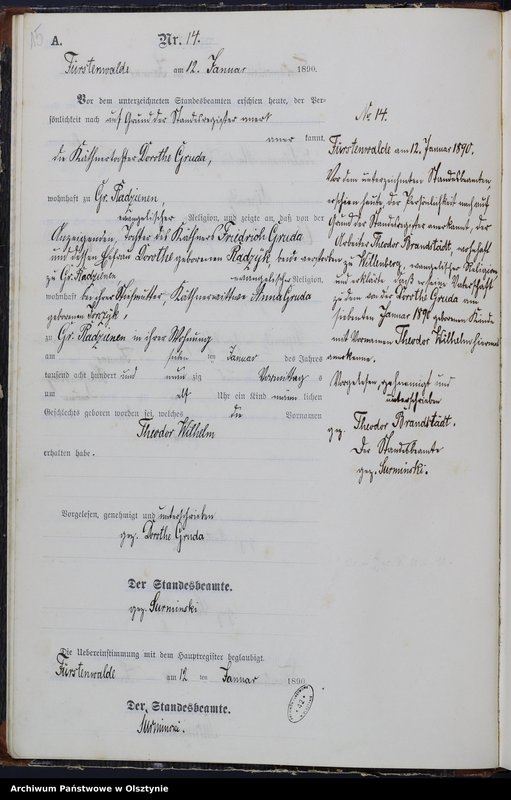 15
A.
Nr. 14.
Fürstenwalde am 12. Januar 1890.
Vor dem unterzeichneten Standesbeamten erschien heute, der Per-
sönlichkeit nach auf Grund der Standesregister aner
kannt,
die Käthnertochter Dorothe Gruda,
wohnhaft zu Gr. Radzienen,
evangelischer Religion, und zeigte an, daß von der
Anzeigenden, Tochter des Käthners Friedrich Gruda
und dessen Ehefrau Dorothe geborenen Radzyk beide verstorben
zu Gr. Radzienen evangelischer Religion,
wohnhaft bei ihrer Stiefmutter, Käthnerwittwe Anna Gruda
geborenen
zu Gr. Radzienen in ihrer Wohnung
am sieben ten Januar des Jahres
tausend acht hundert und neun zig Vormittag s
um elf Uhr ein Kind männ lichen
Geschlechts geboren worden sei, welches die Vornamen
Theodor Wilhelm
erhalten habe.
Vorgelesen, genehmigt und unterschrieben
gez. Dorothe Gruda
Der Standesbeamte.
gez. Surminski
Die Uebereinstimmung mit dem Hauptregister beglaubigt.
Fürstenwalde am 12 ten Januar 1890
Der Standesbeamte.
Surminski.
No 14.
Fürstenwalde am 12. Januar 1890.
Vor dem unterzeichneten Standesbeamten,
erschien heute, der Persönlichkeit nach auf
Grund der Standesregister anerkannt, der
Arbeiter Theodor Brandstädt, wohnhaft
zu Willenberg, evangelischer Religion
und erklärte, daß er seine Vaterschaft
zu dem von der Dorothe Gruda am
siebenten Januar 1890 geborenen Kinde
mit Vornamen Theodor Wilhelm hiermit
anerkenne.
Vorgelesen, genehmigt und
unterschrieben
gez. Theodor Brandstädt.
Der Standesbeamte
gez. Surminski.
Archiwum Państwowe w Olsztynie